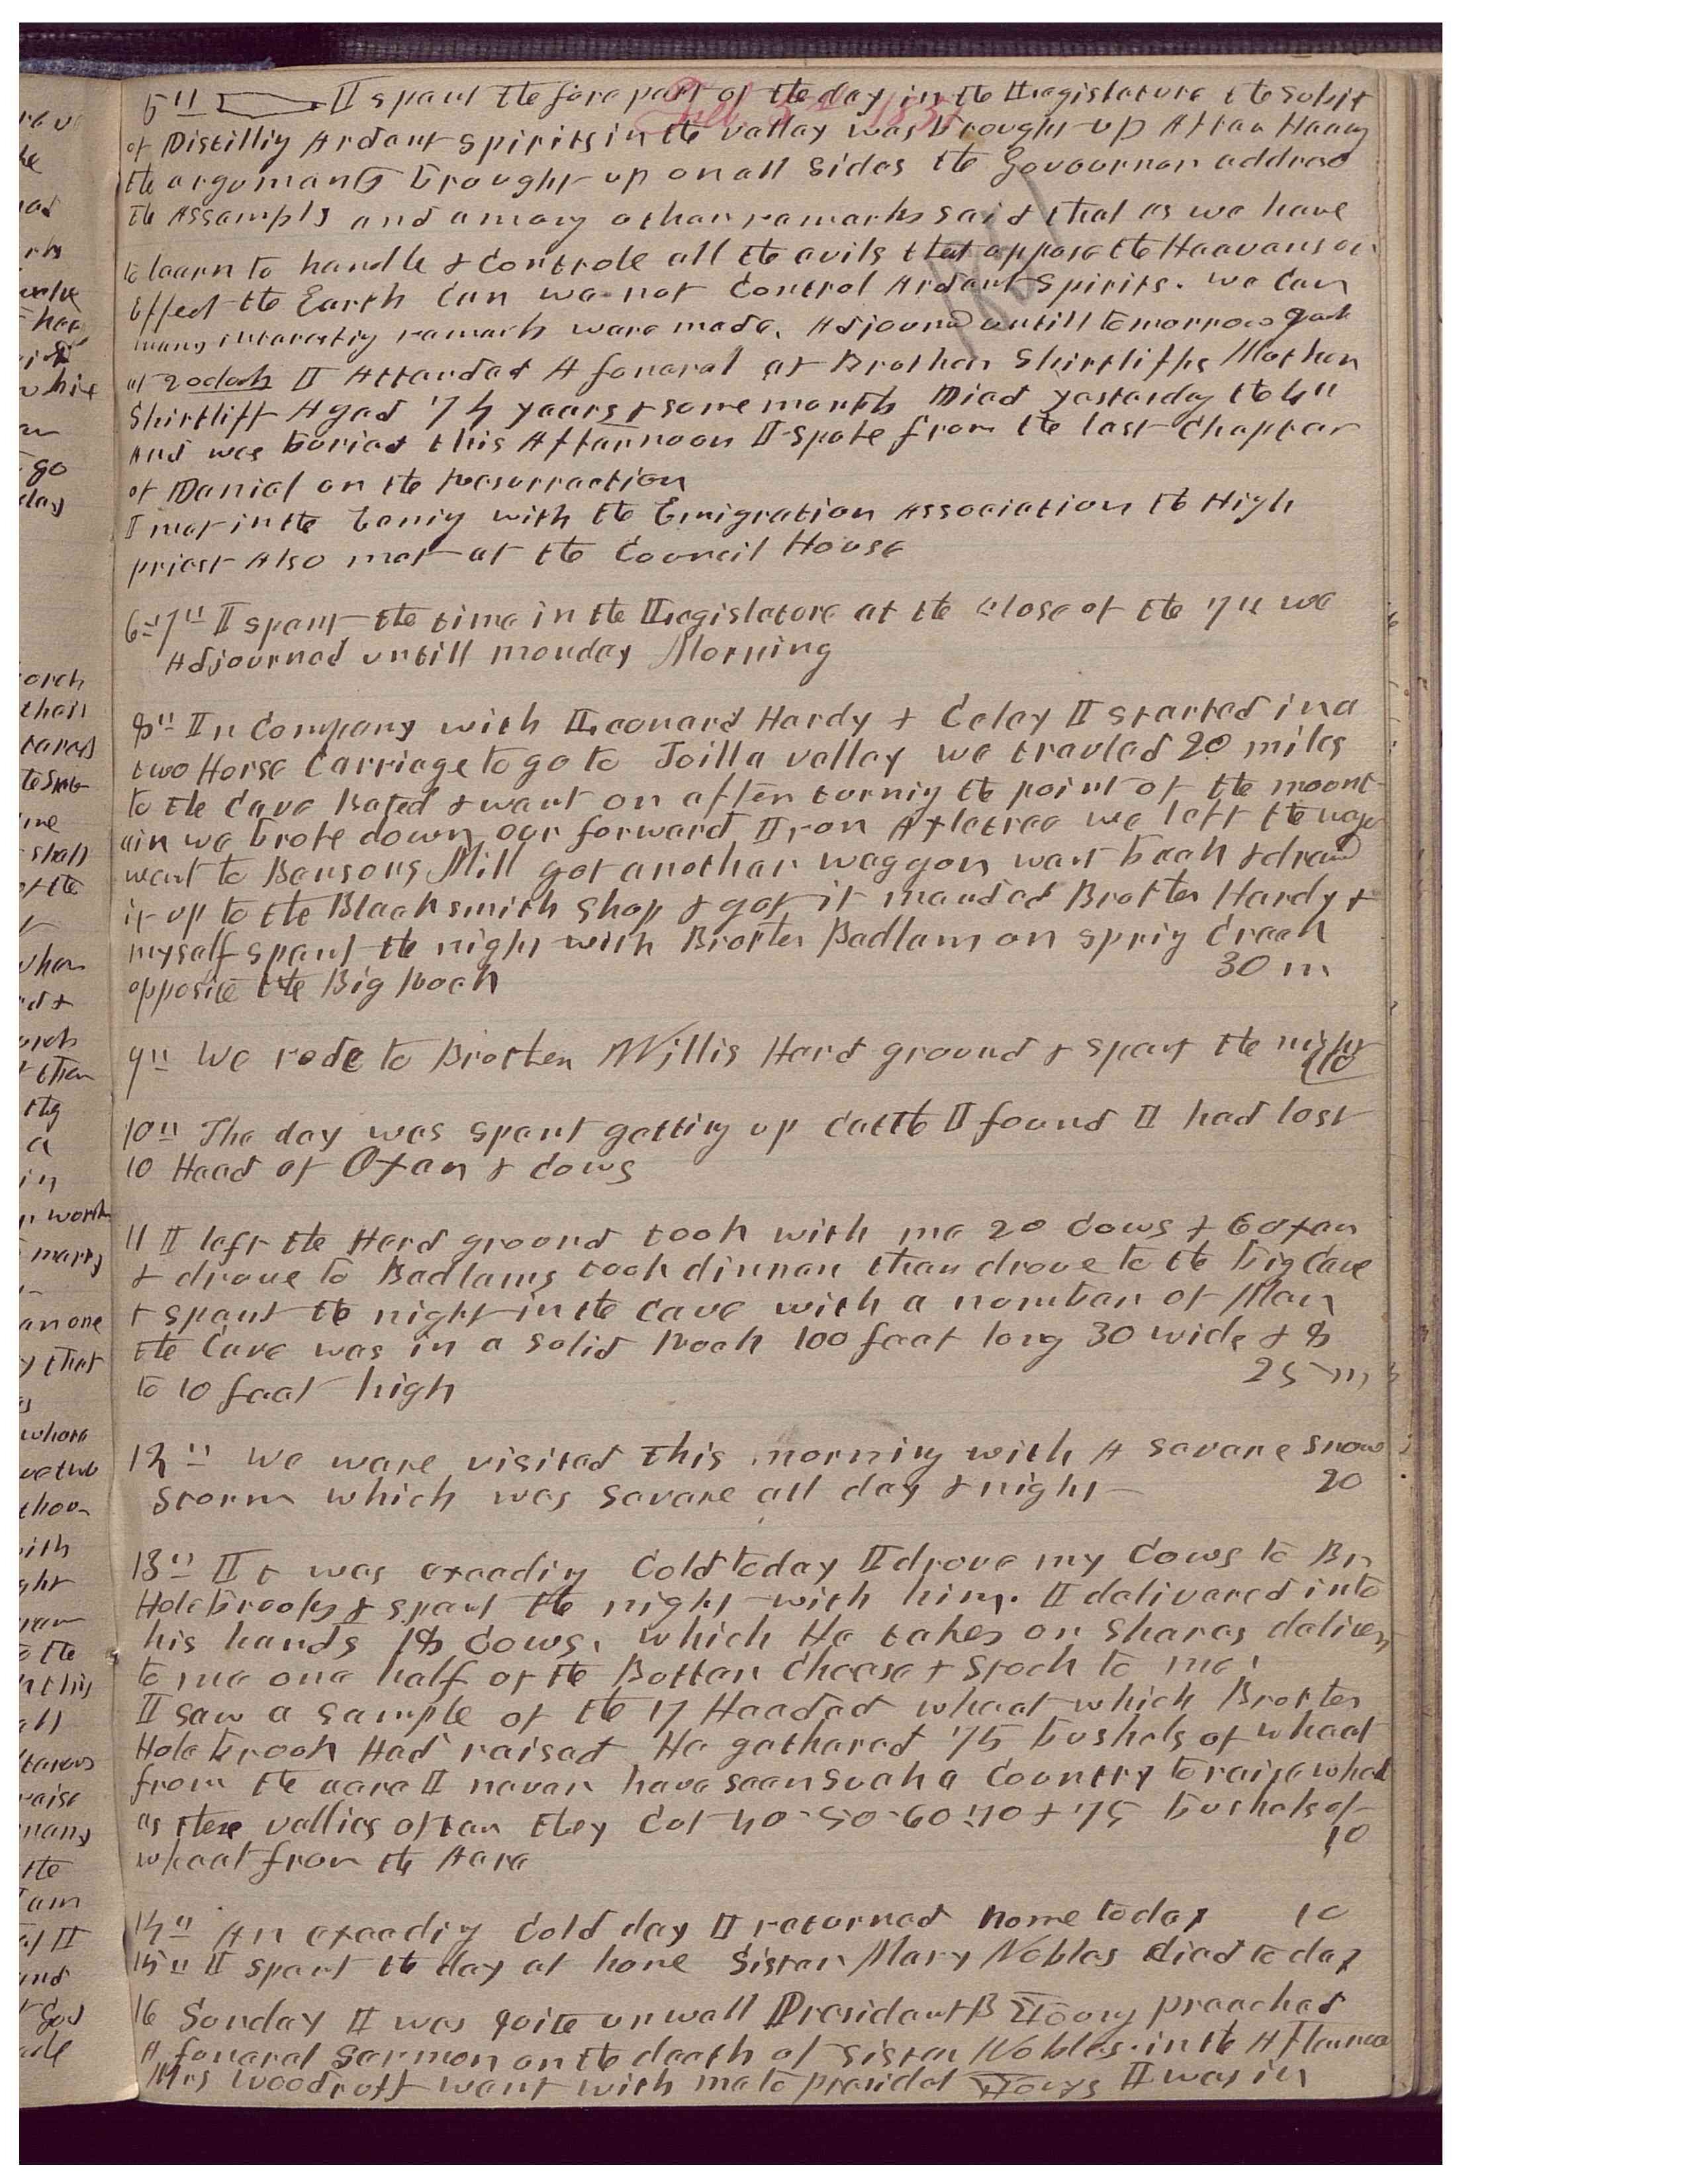 5th I spent the fore part of the day in the Legislature the Subjt
of Distilling Ardent Spirits in the valley was brought up After Hearing
the arguments brought up on all Sides the Govournor addresd
the Assembly and among other remarks said that as we have
to learn to handle & Controle all the evils that oppose the Heavens or
Effect the Earth Can we not Control Ardent Spirits. we Can
many interesting remarks were made. Adjournd untill tomorrow
at 2 oclock I Attended A funeral at Brother Shirtliffs Mother
Shirtliff Aged 74 years & some months Died yesterday the 4th
And was buried this Afternoon I spoke from the last Chapter
of Daniel on the Resurrection
I met in the Evening with the Emigration Association the High
priest Also met at the Council House
6-7th I spent the time in the Legislature at the close of the 7th we
Adjourned untill monday Morning
8th In Company with Leonard Hardy & Celey I started in a
two Horse Carriage to go to Toilla valley we travled 20 miles
to the Cave Bated & went on after turning the point of the mount-
ain we broke down our forward Iron Axletree we left the
went to Bensons Mill got another waggon went back & drawd
it up to the Blacksmith Shop & got it mended Brother Hardy &
myself spent the night with Brother Badlam on spring Creek
opposite the Big Rock 30 m
9th We rode to Brother Willis Hard ground & spent the night 10
10th The day was spent getting up Cattle I found I had lost
10 Head of Oxen & Cows
11 I left the Hard ground took with me 20 Cows & 6 oxen
& drove to Badlams took dinner then drove to the big Cave
& spent the night in the Cave with a number of Men
the Cave was in a solid Rock 100 feet long 30 wide & 8
to 10 feet high 25 m
12th We ware visited this morning with A Severe Snow
Storm which was Severe all day & night 20
13th It was exceeding Cold today I drove my Cows to Br
Holebrooks & spent the night with him. I delivered into
his hands 18 Cows. which He takes on Shares delivers
to me one half of the Butter Cheese & Stock to me.
I saw a sample of the 17 Headed wheat which Brother
Holebrook Had raised He gathered 75 bushels of wheat
from the acre I never have seen such a Country to raise wheat
as these vallies often they Cut 40-50-60-70 & 75 bushels of
wheat from the Acre 10
14th An exceeding Cold day I returned home today 10
15th I spent the day at home Sister Mary Nobles died to day
16 Sunday I was quite unwell President B Young preached
A funeral Sermon on the death of Sister Nobles. in the Afternoon
Mrs Woodruff went with me to presidet Youngs I was in